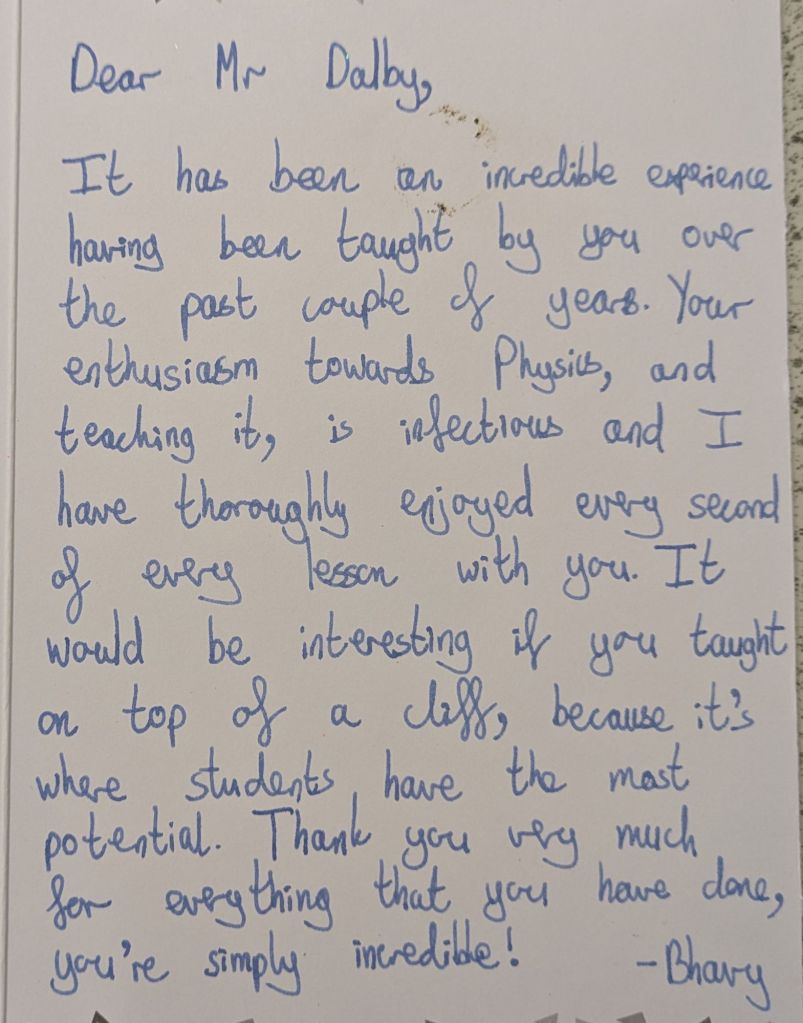 Dear Mr Dalby,
It has been an incredible experience
having been taught by you over
the past couple of years. Your
enthusiasm towards Physics, and
teaching it, is infectious and I
have thoroughly enjoyed every second
of every lesson with you. It
would be interesting if you taught
on top of a cliff, because it's
where students have the most
potential. Thank you very much
for everything that you have done,
you're simply incredible! -Bhavy